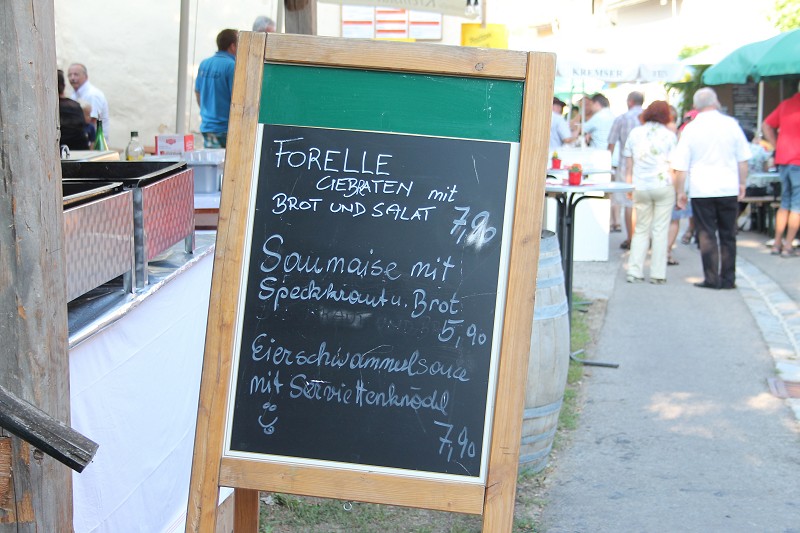 FORELLE
GEBRATEN mit
BROT UND SALAT 7,90
Saumaise mit
Speckkraut u. Brot
5,90
Eierschwammerlsauce
mit Serviettenknödl
7,90
KREMSER